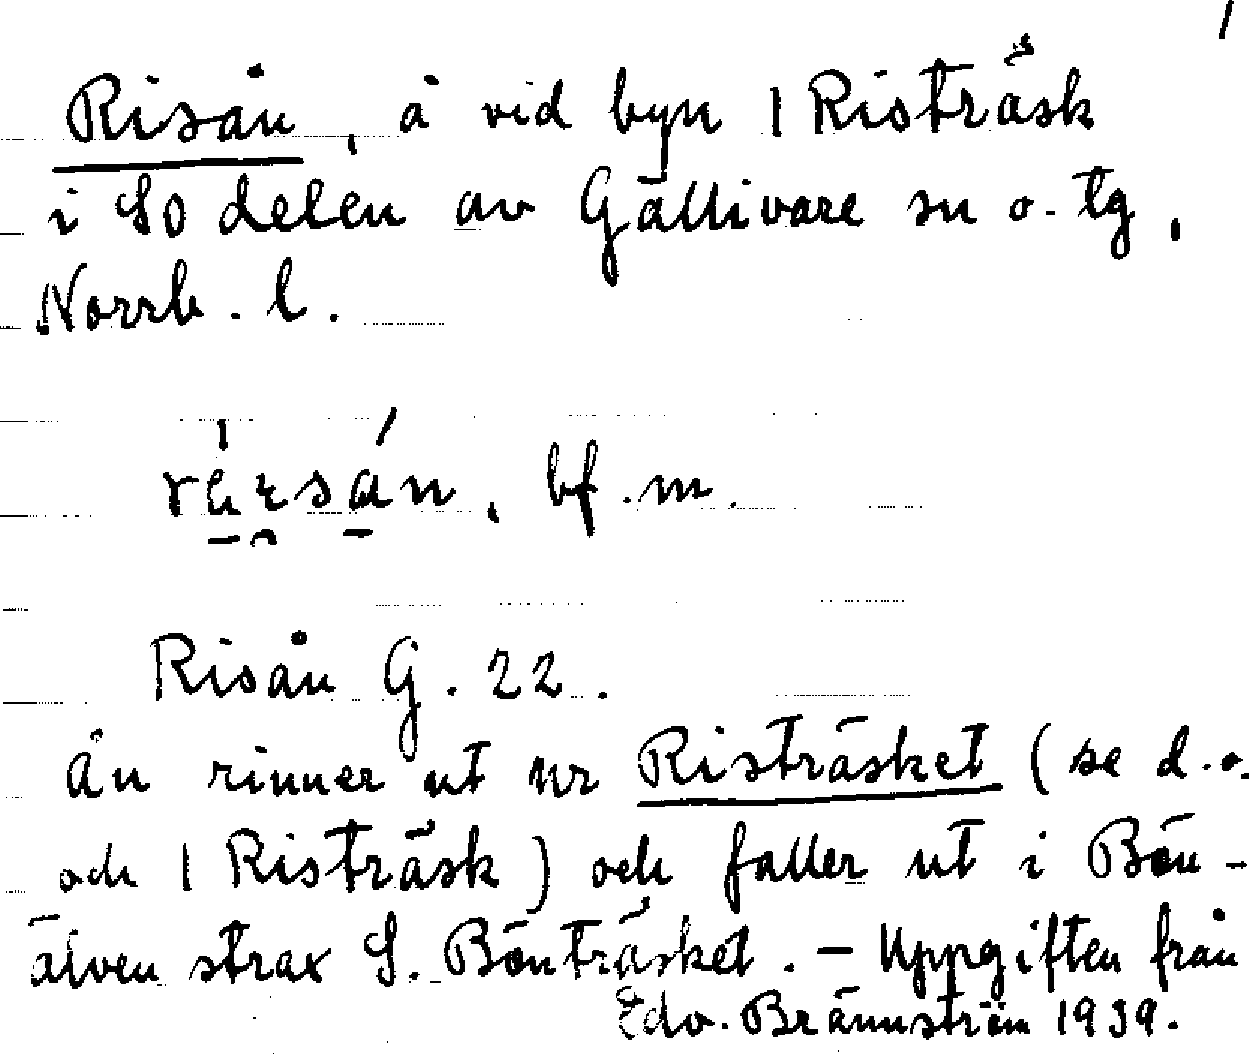 Risån, å vid byn 1 Risträsk
i SO delen av Gällivare sn o. tg,
Norrb. l.
bf. m.
Risån G. 22.
Ån rinner ut ur Risträsket (se d.o.
och 1 Risträsk) och faller ut i Bön-
älven strax S. Bönträsket. – Uppgiften från
Edv. Brännström 1939.